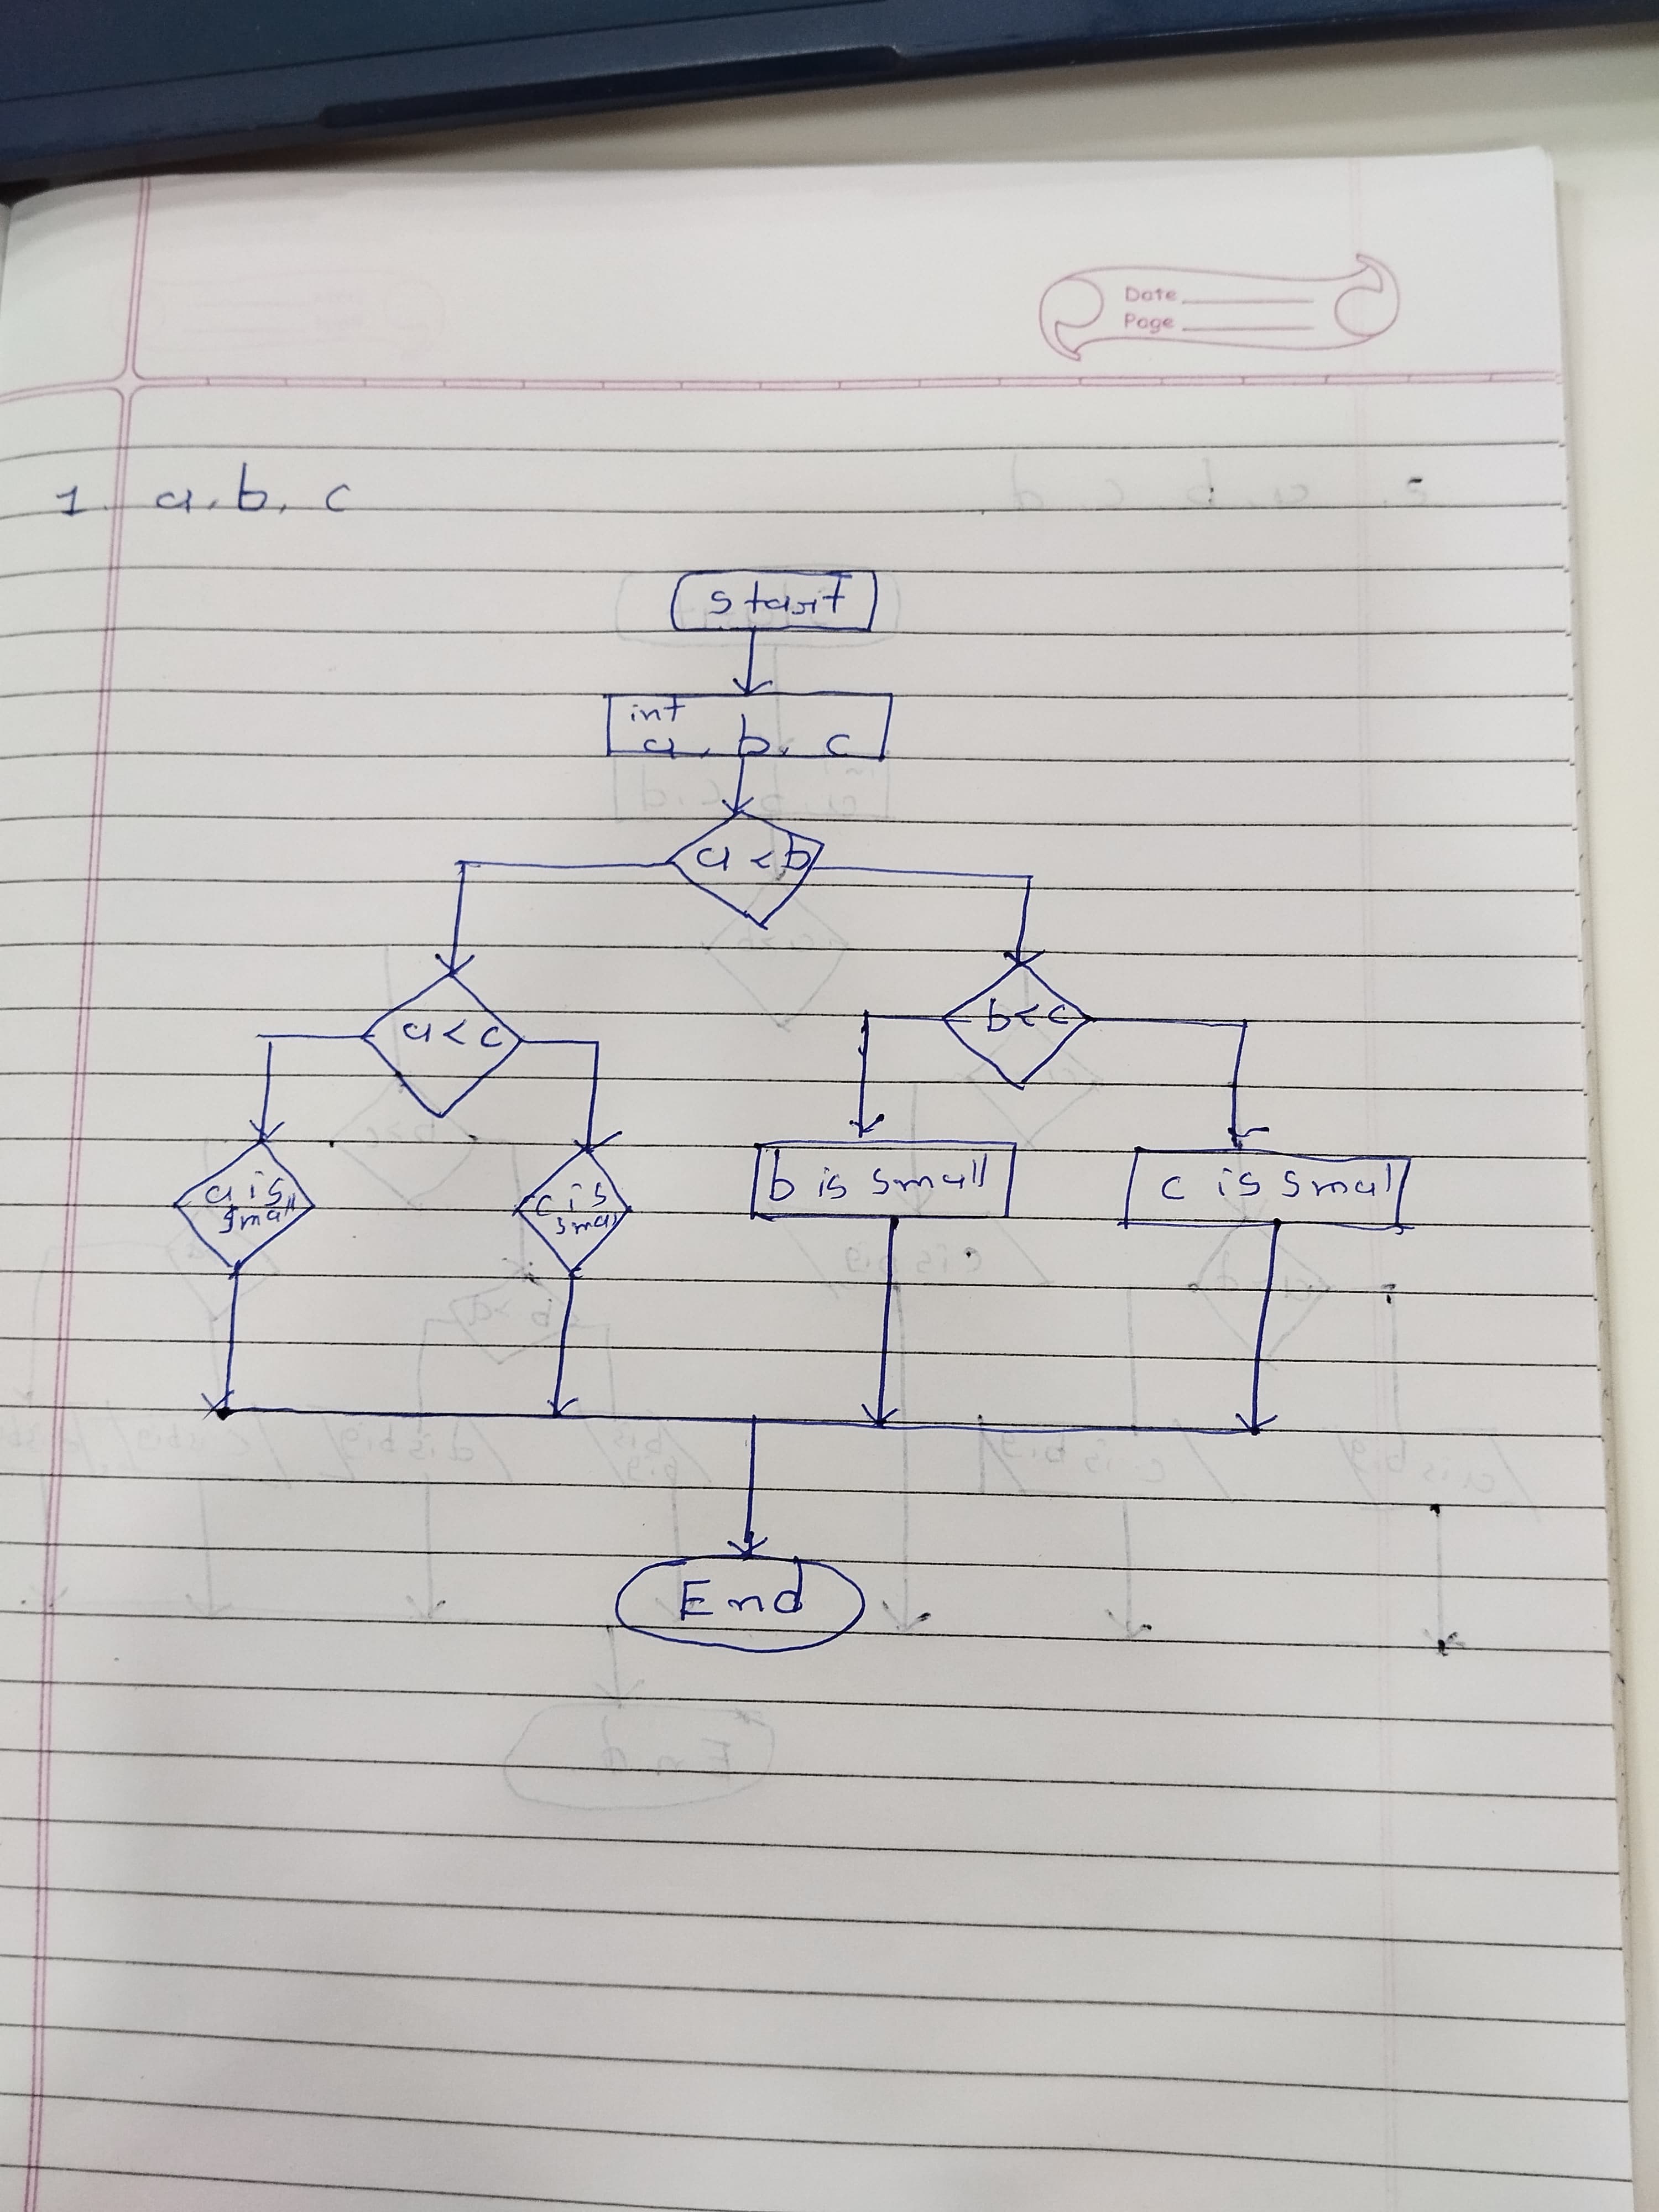 Date
Page
1. a, b, c
start
int
a, b, c
a < b
a < c
b < c
a is
small
c is
smal
b is small
c is smal
End